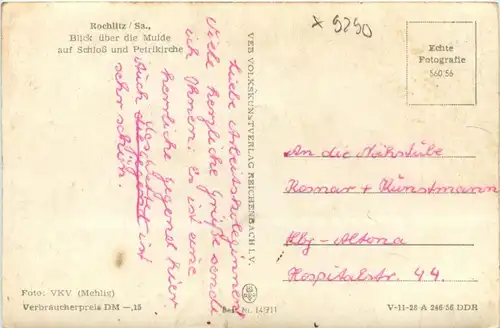 Rochlitz / Sa.,
Blick über die Mulde
auf Schloß und Petrikirche
x 9290
Echte
Fotografie
560/56
Liebe Arbeitskolleginnen
Viele herzliche Grüße sende
ich Ihnen. Es ist eine
herrliche Gegend hier
Auch das ist
sehr schön.
VEB VOLKSKUNSTVERLAG REICHENBACH I. V.
An die Nähstube
Romar + Kunstmann
Hbg-Altona
Hospitalstr. 44.
Foto: VKV (Mehlig)
Verbraucherpreis DM —,15
Best. Nr. 14/911
V-11-28-A 246/56 DDR